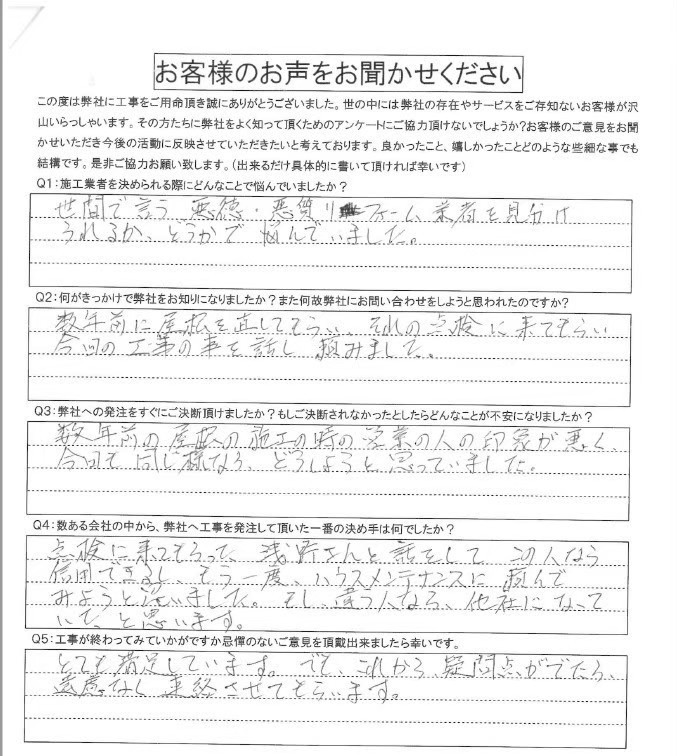 お客様のお声をお聞かせください
この度は弊社に工事をご用命頂き誠にありがとうございました。世の中には弊社の存在やサービスをご存知ないお客様が沢
山いらっしゃいます。その方たちに弊社をよく知って頂くためのアンケートにご協力頂けないでしょうか?お客様のご意見をお聞
かせいただき今後の活動に反映させていただきたいと考えております。良かったこと、嬉しかったことどのような些細な事でも
結構です。是非ご協力お願い致します。(出来るだけ具体的に書いて頂ければ幸いです)
Q1:施工業者を決められる際にどんなことで悩んでいましたか?
世間で言う悪徳・悪質リフォーム業者を見分け
られるか、どうかで悩んでいました。
Q2:何がきっかけで弊社をお知りになりましたか?また何故弊社にお問い合わせをしようと思われたのですか?
数年前に屋根を直してもらい、それの点検に来てもらい
今回の工事の事を話し頼みました。
Q3:弊社への発注をすぐにご決断頂けましたか?もしご決断されなかったとしたらどんなことが不安になりましたか?
数年前の屋根の施工の時の営業の人の印象が悪く、
今回も同じ様なら、どうしようと思っていました。
Q4:数ある会社の中から、弊社へ工事を発注して頂いた一番の決め手は何でしたか?
点検に来てもらって、浅野さんと話をして この人なら
信用できるし、もう一度、ハウスメンテナンスに頼んで
みようと思いました。もし、違う人なら、他社になって
いたと思います。
Q5:工事が終わってみていかがですか忌憚のないご意見を頂戴出来ましたら幸いです。
とても満足しています。でも、これから疑問点がでたら、
遠慮なく連絡させてもらいます。